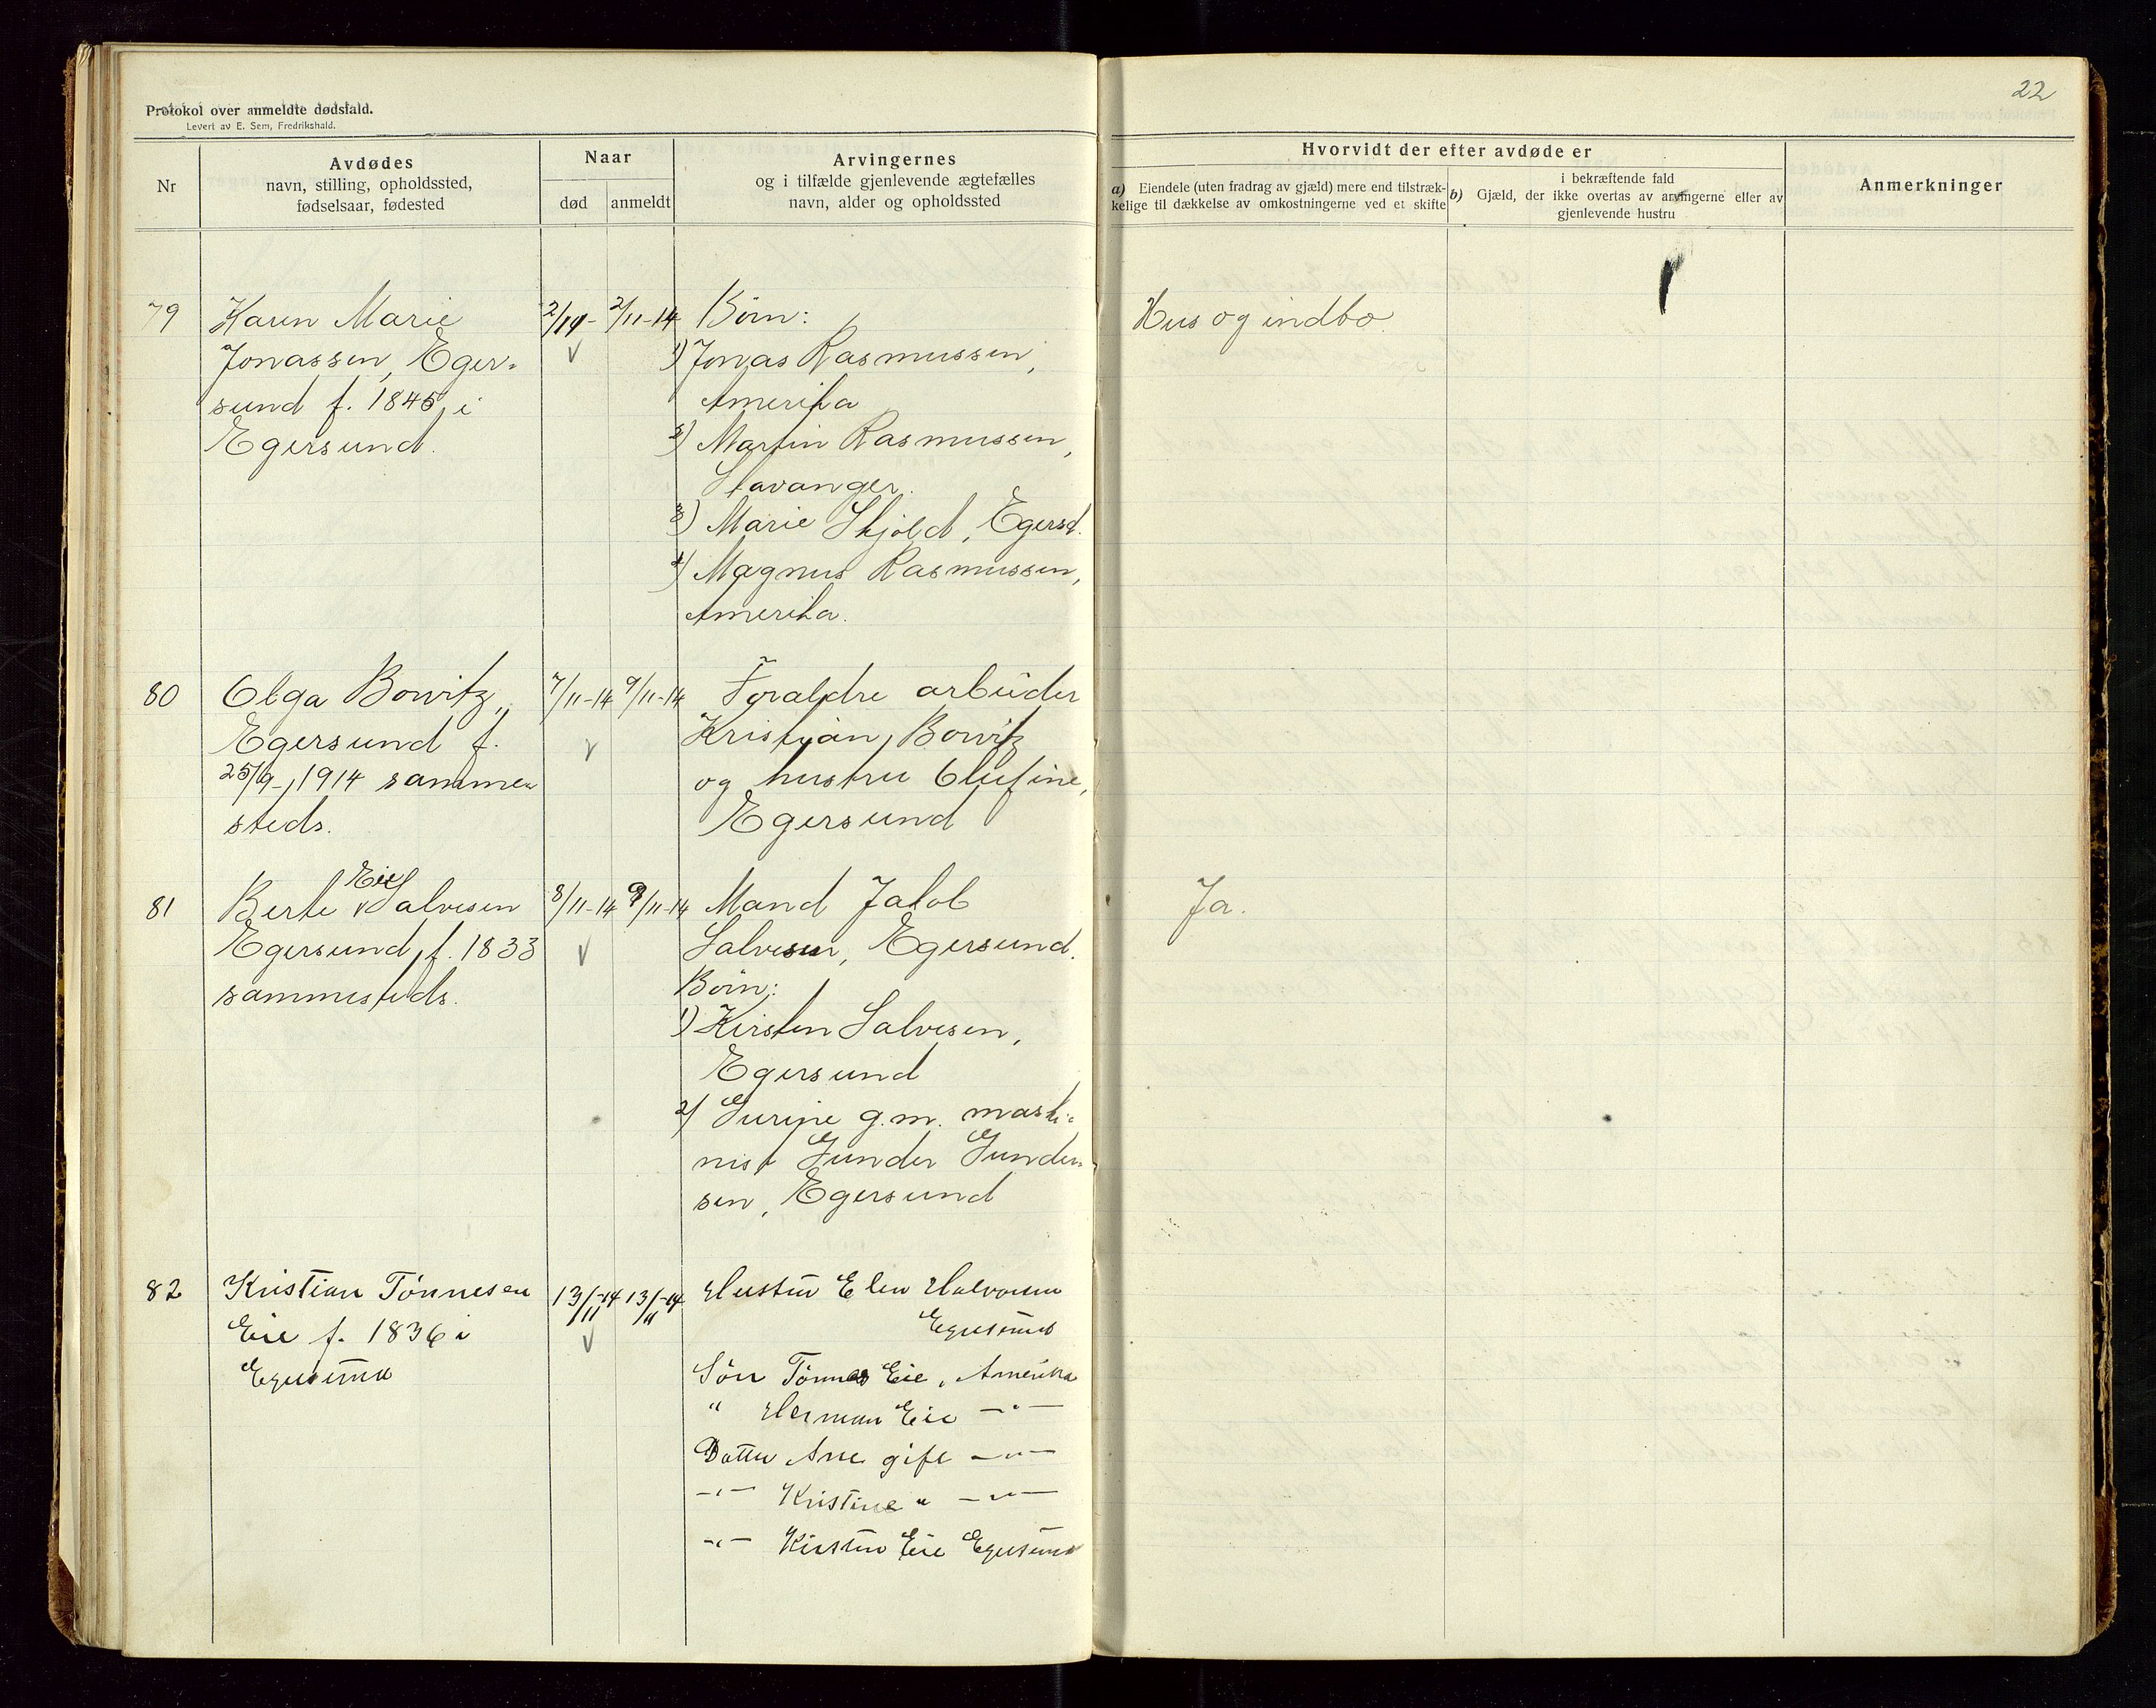 22
Protokol over anmeldte dødsfald.
Levert av E. Sem, Fredrikshald.
Nr
Avdødes
navn, stilling, opholdssted,
fødselsaar, fødested
Naar
død
anmeldt
Arvingernes
og i tilfælde gjenlevende ægtefælles
navn, alder og opholdssted
Hvorvidt der efter avdøde er
a) Eiendele (uten fradrag av gjæld) mere end tilstræk-
kelige til dækkelse av omkostningerne ved et skifte
i bekræftende fald
b) Gjæld, der ikke overtas av arvingerne eller av
gjenlevende hustru
Anmerkninger
79
Karen Marie
Jonassen, Eger-
sund f. 1845, i
Egersund.
2/11-14
Børn:
1) Jonas Rasmussen,
Amerika
2) Martin Rasmussen,
Stavanger.
3) Marie Skjold, Egersd.
4) Magnus Rasmussen,
Amerika.
Hus og indbo
80
Olga Bowitz,
Egersund f.
25/9-1914 samme
steds.
7/11-14
9/11-14
Forældre arbeider
Kristian Bowitz
og hustru Olufine,
Egersund
81
Berte Eie Salvesen
Egersund, f. 1833
sammesteds.
8/11-14
9/11-14
Mand Jakob
Salvesen, Egersund.
Børn:
1) Kirsten Salvesen,
Egersund
2) Gurine g.m. maski-
nist Gunder Gunder-
sen, Egersund
Ja.
82
Kristian Tönnesen
Eie f. 1836 i
Egersund
13/11-14
13/11-14
Hustru Elen Halvorsen
Egersund
Sön Tönnes Eie, Amerika
" Herman Eie -"-
Datter Ane gift -"-
-"- Kristine " -"-
-"- Kirsten Eie Egersund